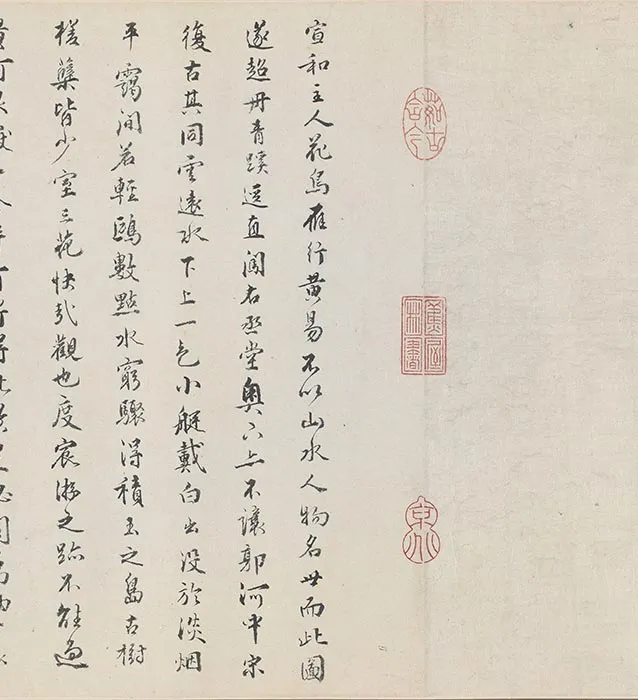 蕉林書屋
宣和主人花鳥雁行黃易不以山水人物名世而此圖
遂超丹青蹊逕直闖右丞堂奧下亦不讓郭河中宋
復古其同雲遠水下上一色小艇戴白出沒於淡烟
平靄間若輕鷗數點水窮驟得積玉之島古樹
槎蘖皆少室三花快哉觀也度宸游之跡不能過